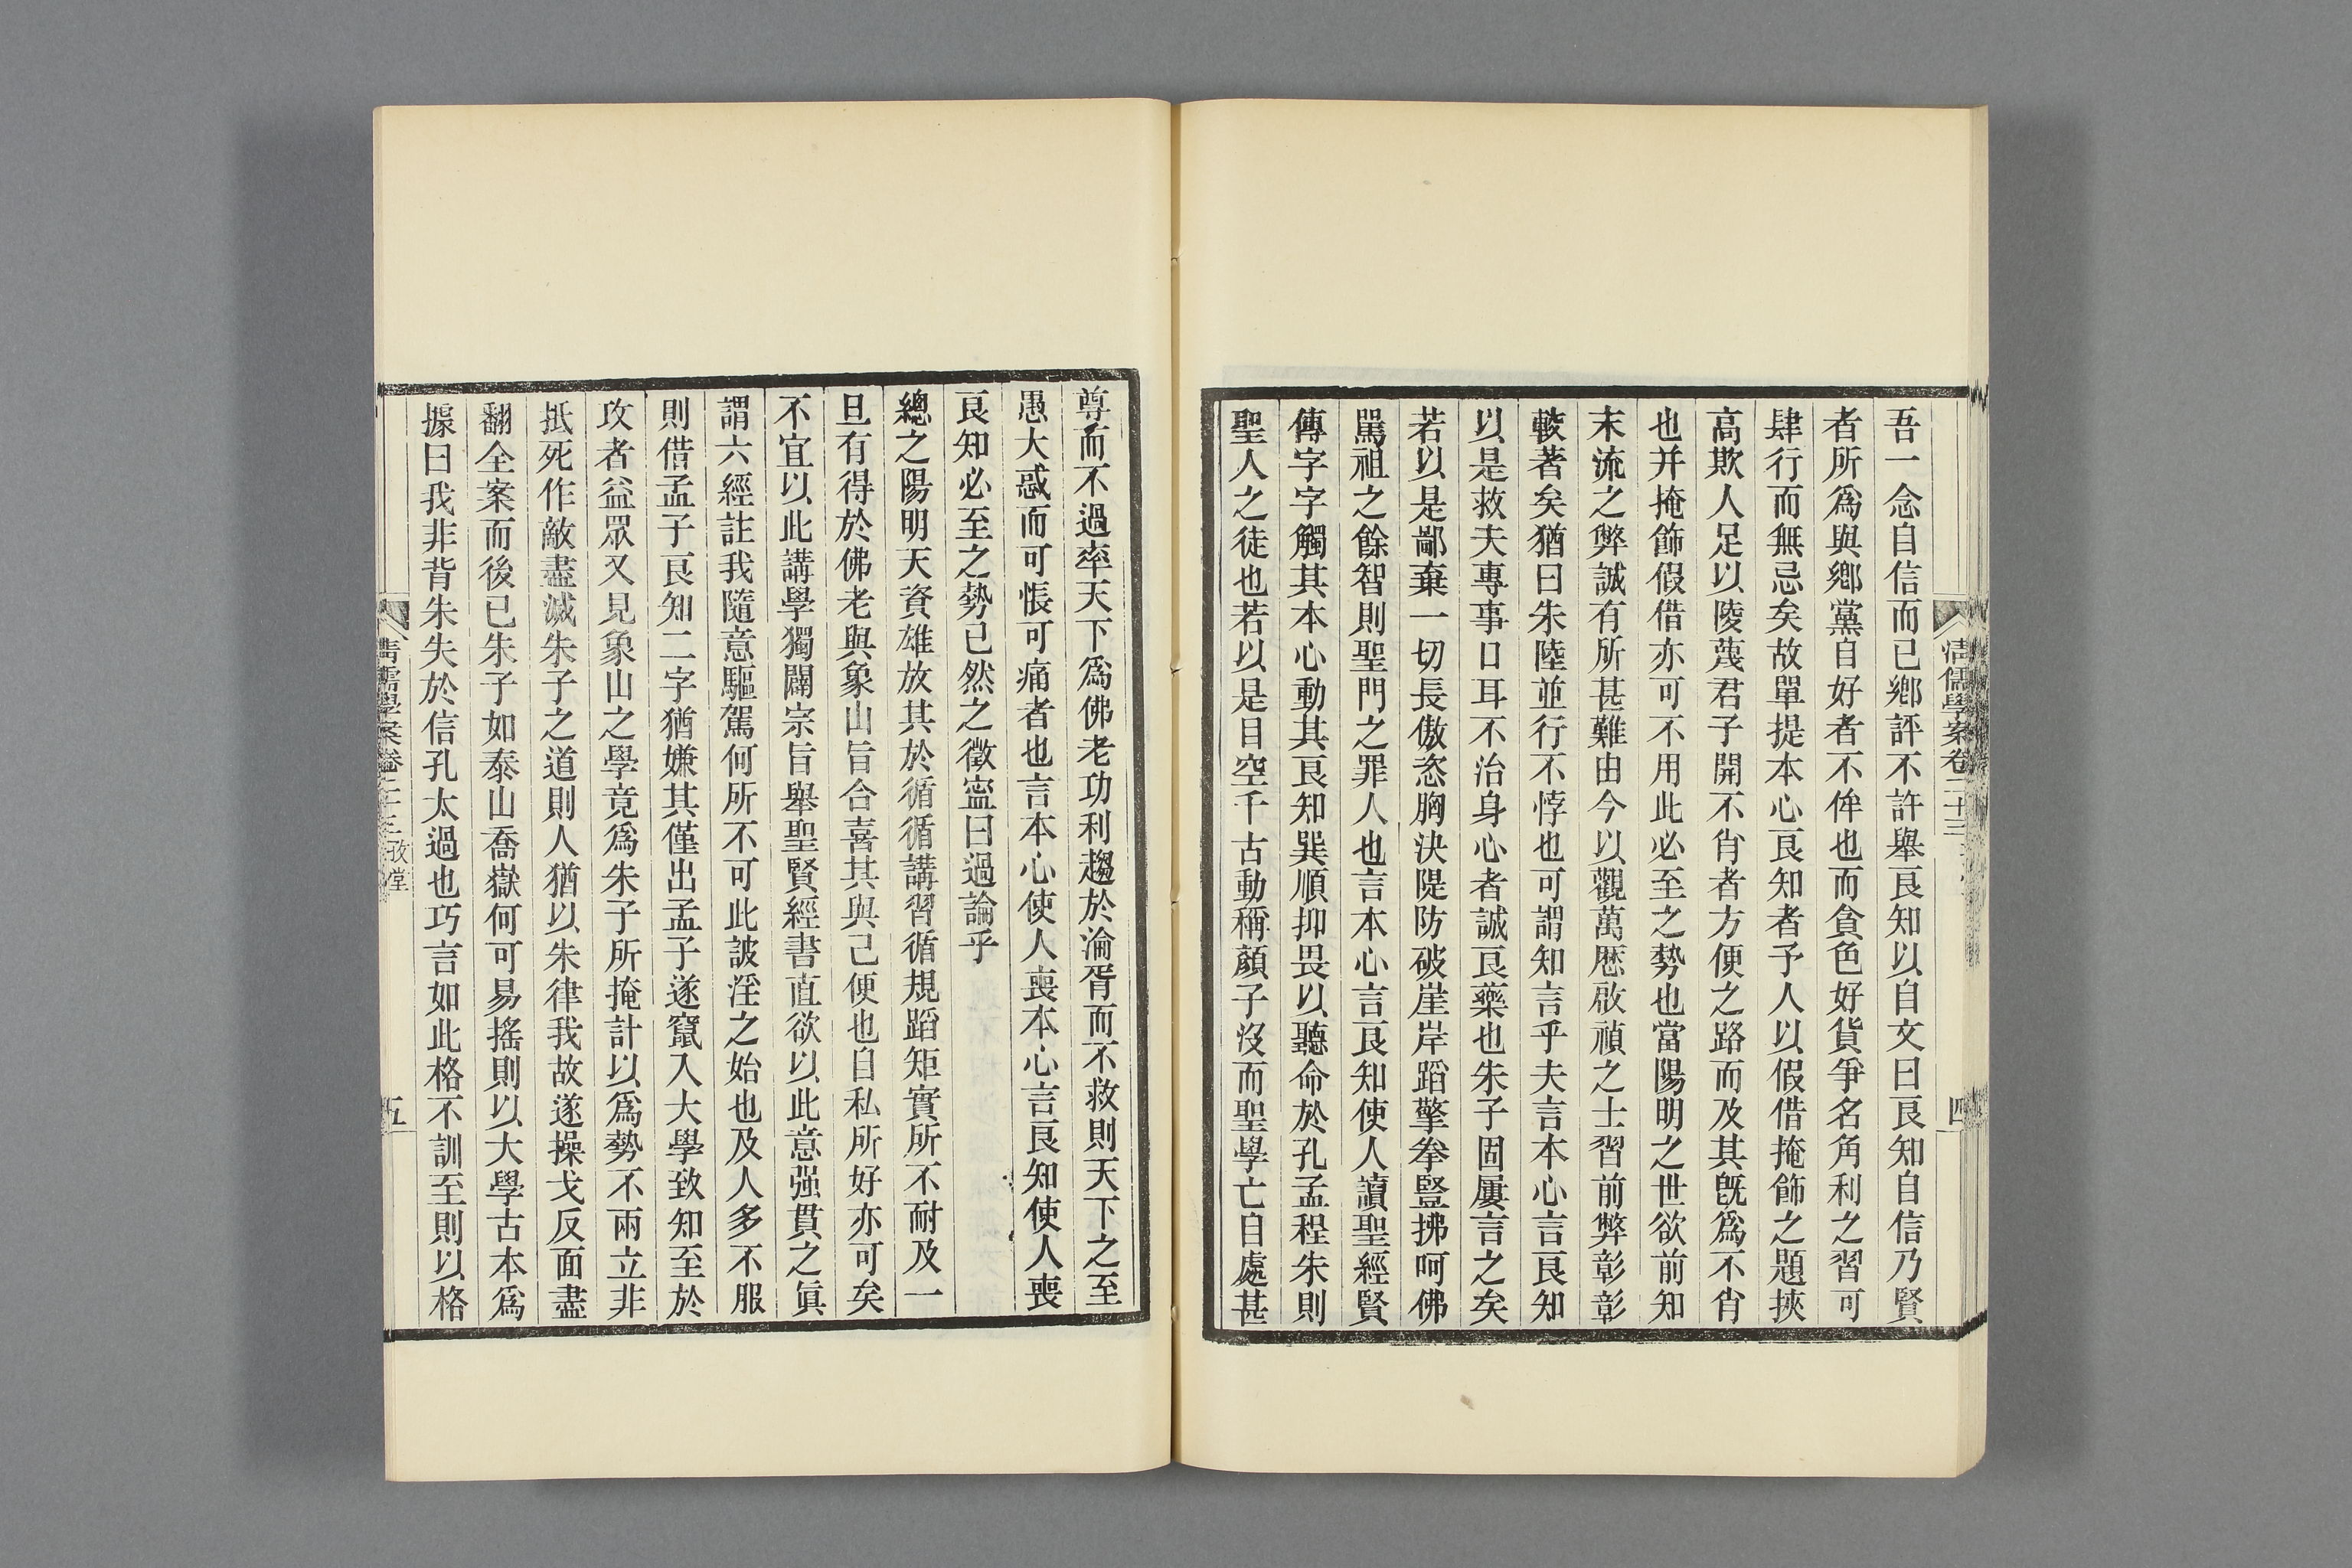 清儒學案卷二十三
四
吾一念自信而已鄉評不許舉良知以自文曰良知自信乃賢
者所爲與鄉黨自好者不侔也而貪色好貨爭名角利之習可
肆行而無忌矣故單提本心良知者予人以假借掩飾之題挾
高欺人足以陵蔑君子開不肖者方便之路而及其旣爲不肖
也并掩飾假借亦可不用此必至之勢也當陽明之世欲前知
末流之弊誠有所甚難由今以觀萬厯啟禎之士習前弊彰彰
較著矣猶曰朱陸並行不悖也可謂知言乎夫言本心言良知
以是救夫專事口耳不治身心者誠良藥也朱子固屢言之矣
若以是鄙棄一切長傲恣胸決隄防破崖岸蹈擎拳豎拂呵佛
罵祖之餘智則聖門之罪人也言本心言良知使人讀聖經賢
傳字字觸其本心動其良知巽順抑畏以聽命於孔孟程朱則
聖人之徒也若以是目空千古動稱顏子沒而聖學亡自處甚
尊而不過率天下爲佛老功利趨於淪胥而不救則天下之至
愚大惑而可悵可痛者也言本心使人喪本心言良知使人喪
良知必至之勢已然之徵寍曰過論乎
總之陽明天資雄放其於循循講習循規蹈矩實所不耐及一
旦有得於佛老與象山旨合喜其與己便也自私所好亦可矣
不宜以此講學獨闢宗旨舉聖賢經書直欲以此意强貫之眞
謂六經註我隨意驅駕何所不可此詖淫之始也及人多不服
則借孟子良知二字猶嫌其僅出孟子遂竄入大學致知至於
攻者益眾又見象山之學竟爲朱子所掩計以爲勢不兩立非
抵死作敵盡滅朱子之道則人猶以朱律我故遂操戈反面盡
翻全案而後已朱子如泰山喬嶽何可易搖則以大學古本爲
據曰我非背朱失於信孔太過也巧言如此格不訓至則以格
清儒學案卷二十三
五